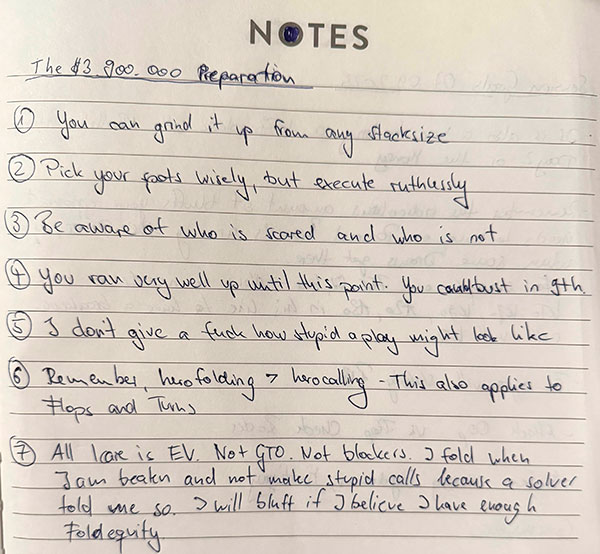 NOTES
The $3.900.000 Preparation
1 You can grind it up from any stacksize
2 Pick your spots wisely, but execute ruthlessly
3 Be aware of who is scared and who is not
4 You ran very well up until this point. You can bust in 9th
5 I don't give a fuck how stupid a play might look like
6 Remember, herofolding > herocalling - This also applies to
Flops and Turns
7 All I care is EV. Not GTO. Not blockers. I fold when
I am beaten and not make stupid calls because a solver
told me so. I will bluff if I believe I have enough
Foldequity